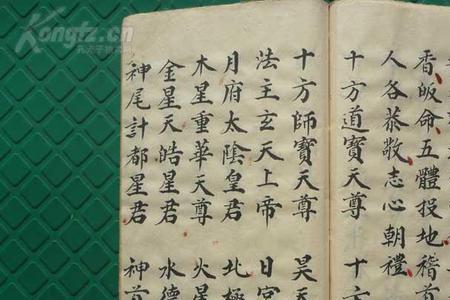 香皈命五體投地稽首
人各恭敬志心朝禮
十方道寶天尊 十方
十方師寶天尊 昊天
法主玄天上帝 日宮
月府太陰皇君 北極
木星重華天尊 火星
金星天皓星君 水德
神尾計都星君 神首
Kongfz.cn